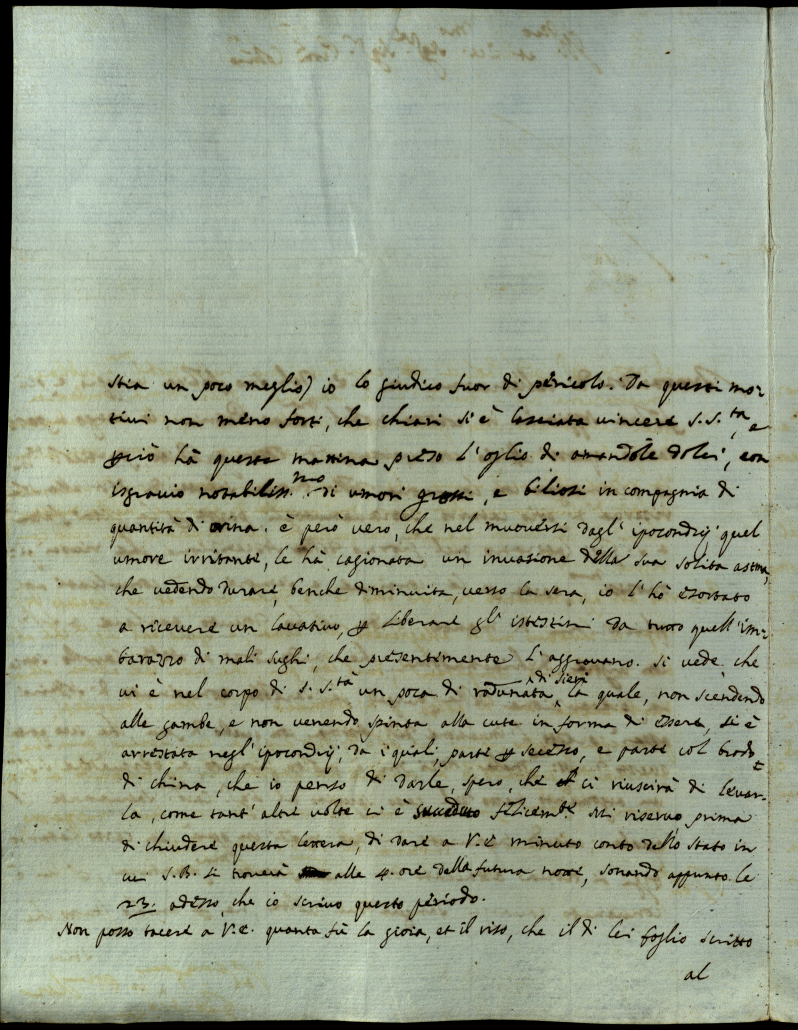 stia un poco meglio) io lo giudico fuor di pericolo. Da questi mo-
tivi non meno forti, che chiari si è lasciata vincere S. S.tà, e
però hà questa mattina preso l'oglio di amandole dolci, con
isgravio notabiliss.mo di umori grossi, e biliosi in compagnia di
quantità di orina. è però vero, che nel muoversi dagl' ipocondrij quel
umore irritante, le hà cagionata un invasione della sua solita asma,
che vedendo durare, benche diminuita, verso la sera, io l'hò esortato
a ricevere un lavativo, p liberare gl' istestini da tutto quell' im-
barazzo di mali sughi, che presentimente l'aggravano. Si vede che
vi è nel corpo di S. S.tà un poca di radunata di sieri, la quale, non scendendo
alle gambe, e non venendo spinta alla cute in forma di , si è
arrestata negl' ipocondrij, da i quali, parte p secesso, e parte col brodo
di china, che io penso di darle, spero, che ci riuscirà di levar-
la, come tant' altre volte ci è succeduto felicem.te Mi riservo prima
di chiudere questa lettera, di dare a V.E. minuto conto dello stato in
cui S.B. si troverà alle 4. ore della futura notte, sonando appunto le
23. adesso che io scrivo questo periodo.
Non posso tacere a V.E. quanta fù la gioia, et il riso, che il di lei foglio scritto
al